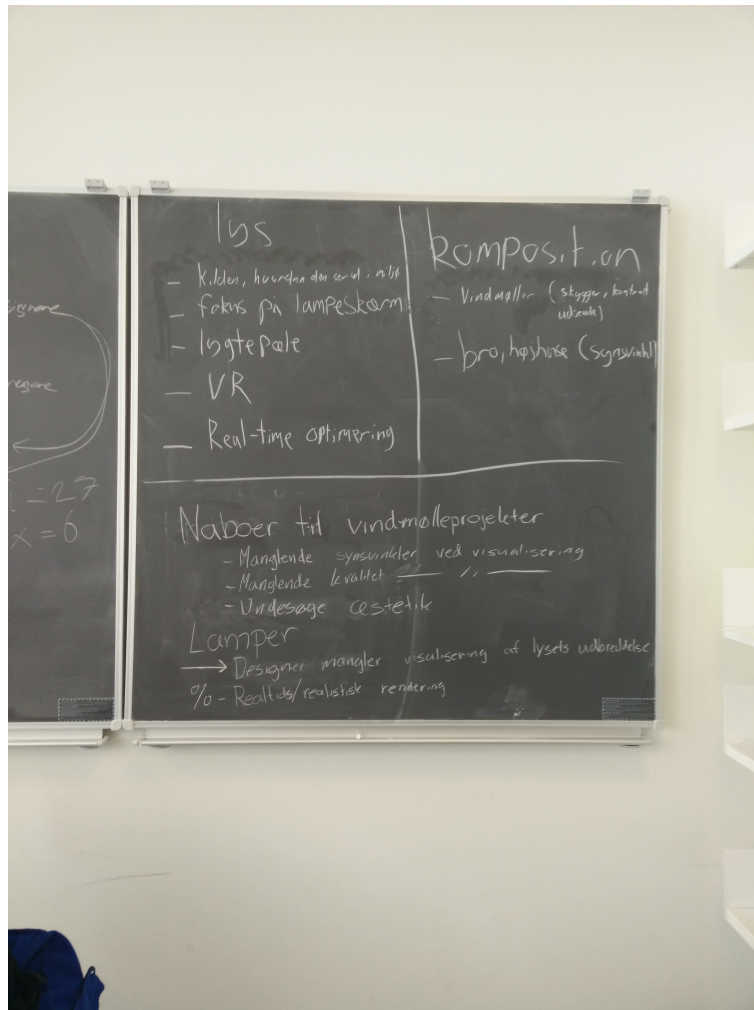 lys
- Kilden, hvordan den ser ud i miljø
- fokus på lampeskærm
- lygtepæle
- VR
- Real-time optimering
komposition
- Vindmøller (skygger,
- bro, højhuse (synsvinkel)
Naboer til vindmølleprojekter
- Manglende synsvinkler ved visualisering
- Manglende kvalitet —— 〃 ——
- Undesøge æstetik
Lamper
→ Designer mangler visalisering af lysets udbreddelse
% - Realtids/realistisk rendering
= 27
x = 6